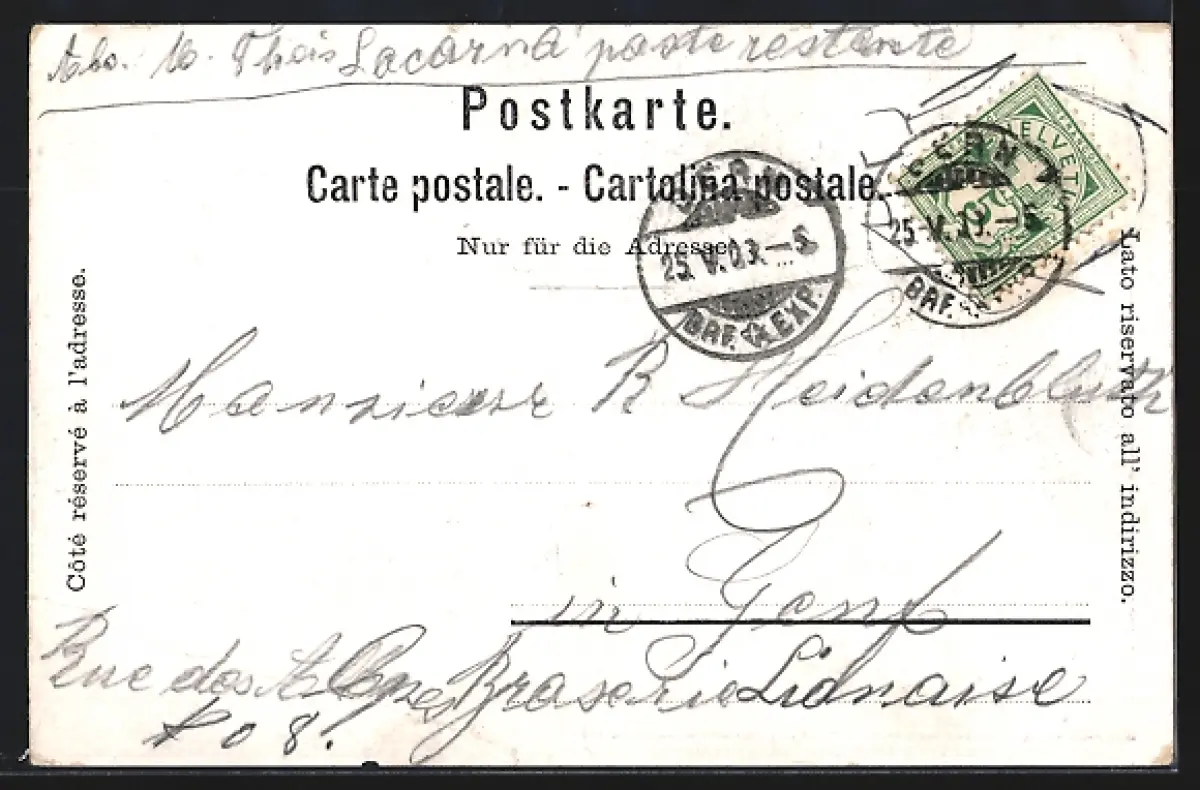 Abs. M. Theis Lacarna poste restante
Postkarte.
Carte postale. - Cartolina postale.
Nur für die Adresse.
HELVETIA
BERN
25.V.03.-5
BRF. EXP.
BERN
25.V.03.-5
BRF.
Côté réservé à l'adresse.
Lato riservato all' indirizzo.
Monsieur R Heidenbluth
in Genf
Rue des Alpes Braserie Lionaise
No 8.